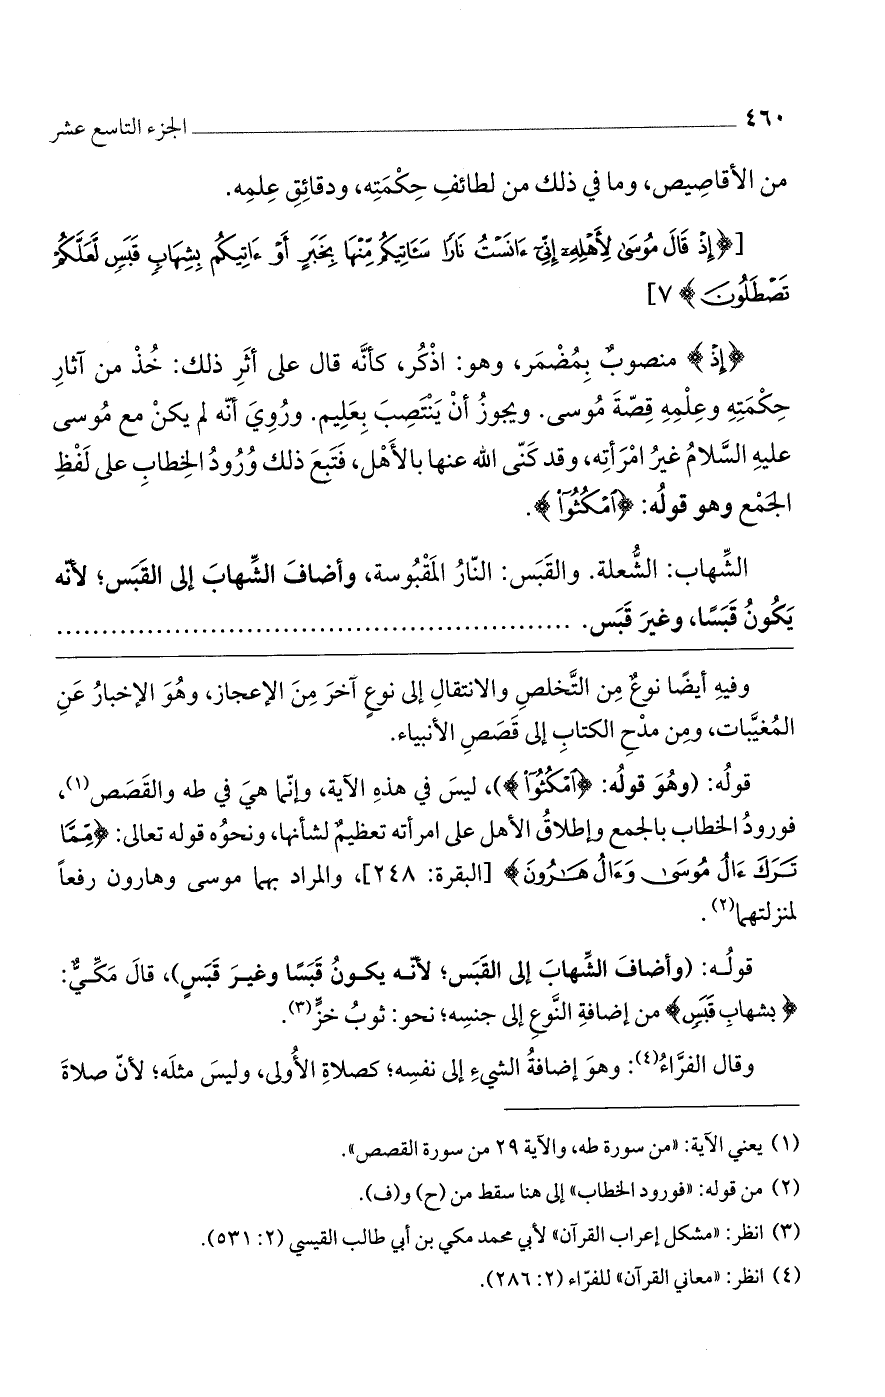 ٤٦٠ ــــــــــــــــــــــــــــــــــــــــــــــــ الجزء التاسع عشر
من الأقاصِيص، وما في ذلك من لطائفِ حِكْمَتِه، ودقائِقِ عِلمِه.
[﴿إِذْ قَالَ مُوسَىٰ لِأَهْلِهِۦٓ إِنِّىٓ ءَانَسْتُ نَارًا سَـَٔاتِيكُم مِّنْهَا بِخَبَرٍ أَوْ ءَاتِيكُم بِشِهَابٍ قَبَسٍ لَّعَلَّكُمْ
تَصْطَلُونَ﴾ ٧]
﴿إِذْ﴾ منصوبٌ بِمُضْمَر، وهو: اذْكُر، كأنَّه قال على أثَرِ ذلك: خُذْ من آثارِ
حِكْمَتِهِ وعِلْمِهِ قِصّةَ مُوسى. ويجوزُ أنْ يَنْتَصِبَ بِعَلِيم. ورُوِيَ أنّه لم يكنْ مع مُوسى
عليهِ السَّلامُ غيرُ امْرَأتِه، وقد كَنّى الله عنها بالأَهْل، فتَبعَ ذلك وُرُودُ الخِطابِ على لَفْظِ
الجَمْع وهو قولُه: ﴿ٱمْكُثُوٓا۟﴾.
الشِّهاب: الشُّعلة. والقَبَس: النّارُ المَقْبُوسة، وأضافَ الشِّهابَ إلى القَبَس؛ لأنّه
يَكُونُ قَبَسًا، وغيرَ قَبَس. ..........................................................
وفيهِ أيضًا نوعٌ مِن التَّخلصِ والانتقالِ إلى نوعٍ آخرَ مِنَ الإعجاز، وهُوَ الإخبارُ عَنِ
المُغيَّبات، ومِن مدْحِ الكتابِ إلى قَصَصِ الأنبياء.
قولُه: (وهُوَ قولُه: ﴿ٱمْكُثُوٓا۟﴾)، ليسَ في هذهِ الآية، وإنّما هيَ في طه والقَصَص(١)،
فورودُ الخطاب بالجمع وإطلاقُ الأهل على امرأته تعظيمٌ لشأنها، ونحوُه قوله تعالى: ﴿مِّمَّا
تَرَكَ ءَالُ مُوسَىٰ وَءَالُ هَـٰرُونَ﴾ [البقرة: ٢٤٨]، والمراد بهما موسى وهارون رفعاً
لمنزلتهما(٢).
قولُـه: (وأضافَ الشِّهابَ إلى القَبَس؛ لأنّـه يكـونُ قَبَسًا وغيـرَ قَبَسٍ)، قالَ مَكِّـيٌّ:
﴿بشهابِ قَبَسٍ﴾ من إضافةِ النَّوعِ إلى جنسِه؛ نحو: ثوبُ خزٍّ(٣).
وقال الفرَّاءُ(٤): وهوَ إضافةُ الشيءِ إلى نفسِه؛ كصلاةِ الأُولى، وليسَ مثلَه؛ لأنّ صلاةَ
(١) يعني الآية: «من سورة طه، والآية ٢٩ من سورة القصص».
(٢) من قوله: «فورود الخطاب» إلى هنا سقط من (ح) و(ف).
(٣) انظر: «مشكل إعراب القرآن» لأبي محمد مكي بن أبي طالب القيسي (٢: ٥٣١).
(٤) انظر: «معاني القرآن» للفرّاء (٢: ٢٨٦).